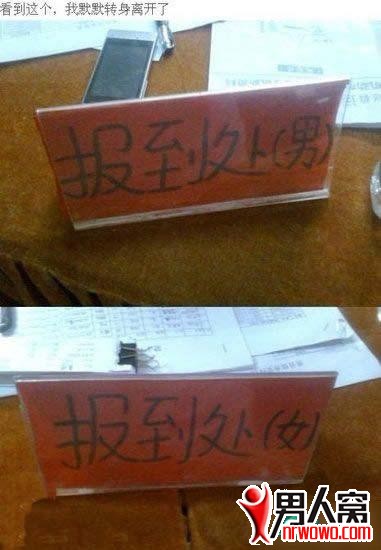 看到这个，我默默转身离开了
报到处(男)
报到处(女)
男人窝
nrwowo.com